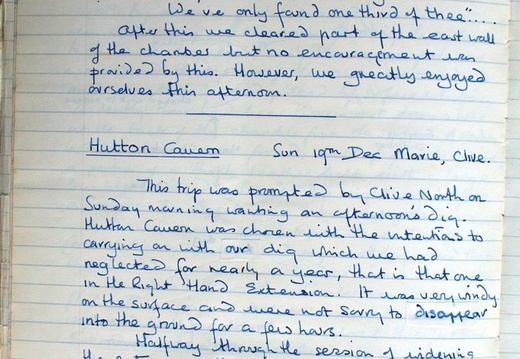 We've only found one third of thee".....
After this we cleared part of the east wall
of the chamber but no encouragement was
provided by this. However, we greatly enjoyed
ourselves this afternoon.
Hutton Cavern Sun 19th Dec Marie, Clive.
This trip was prompted by Clive North on
Sunday morning wanting an afternoon's dig.
Hutton Cavern was chosen with the intentions to
carrying on with our dig which we had
neglected for nearly a year, that is that one
in the Right Hand Extension. It was very windy
on the surface and were not sorry to disappear
into the ground for a few hours.
Halfway through the session of widening